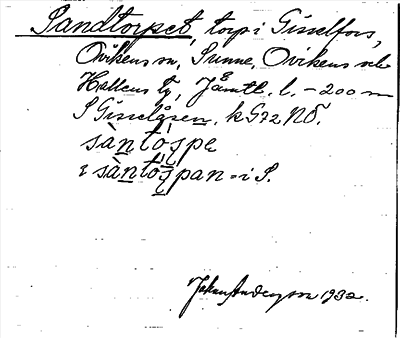 Sandtorpet, torp i Gisselfors,
Ovikens sn, Sunne, Ovikens och
Hallens tg, Jämtl. l. – 200 m
S Gisselåsen. k G72 NÖ.
sàntó̩spe
ı sàntó̩span = i S.
Johan Anderson 1932.